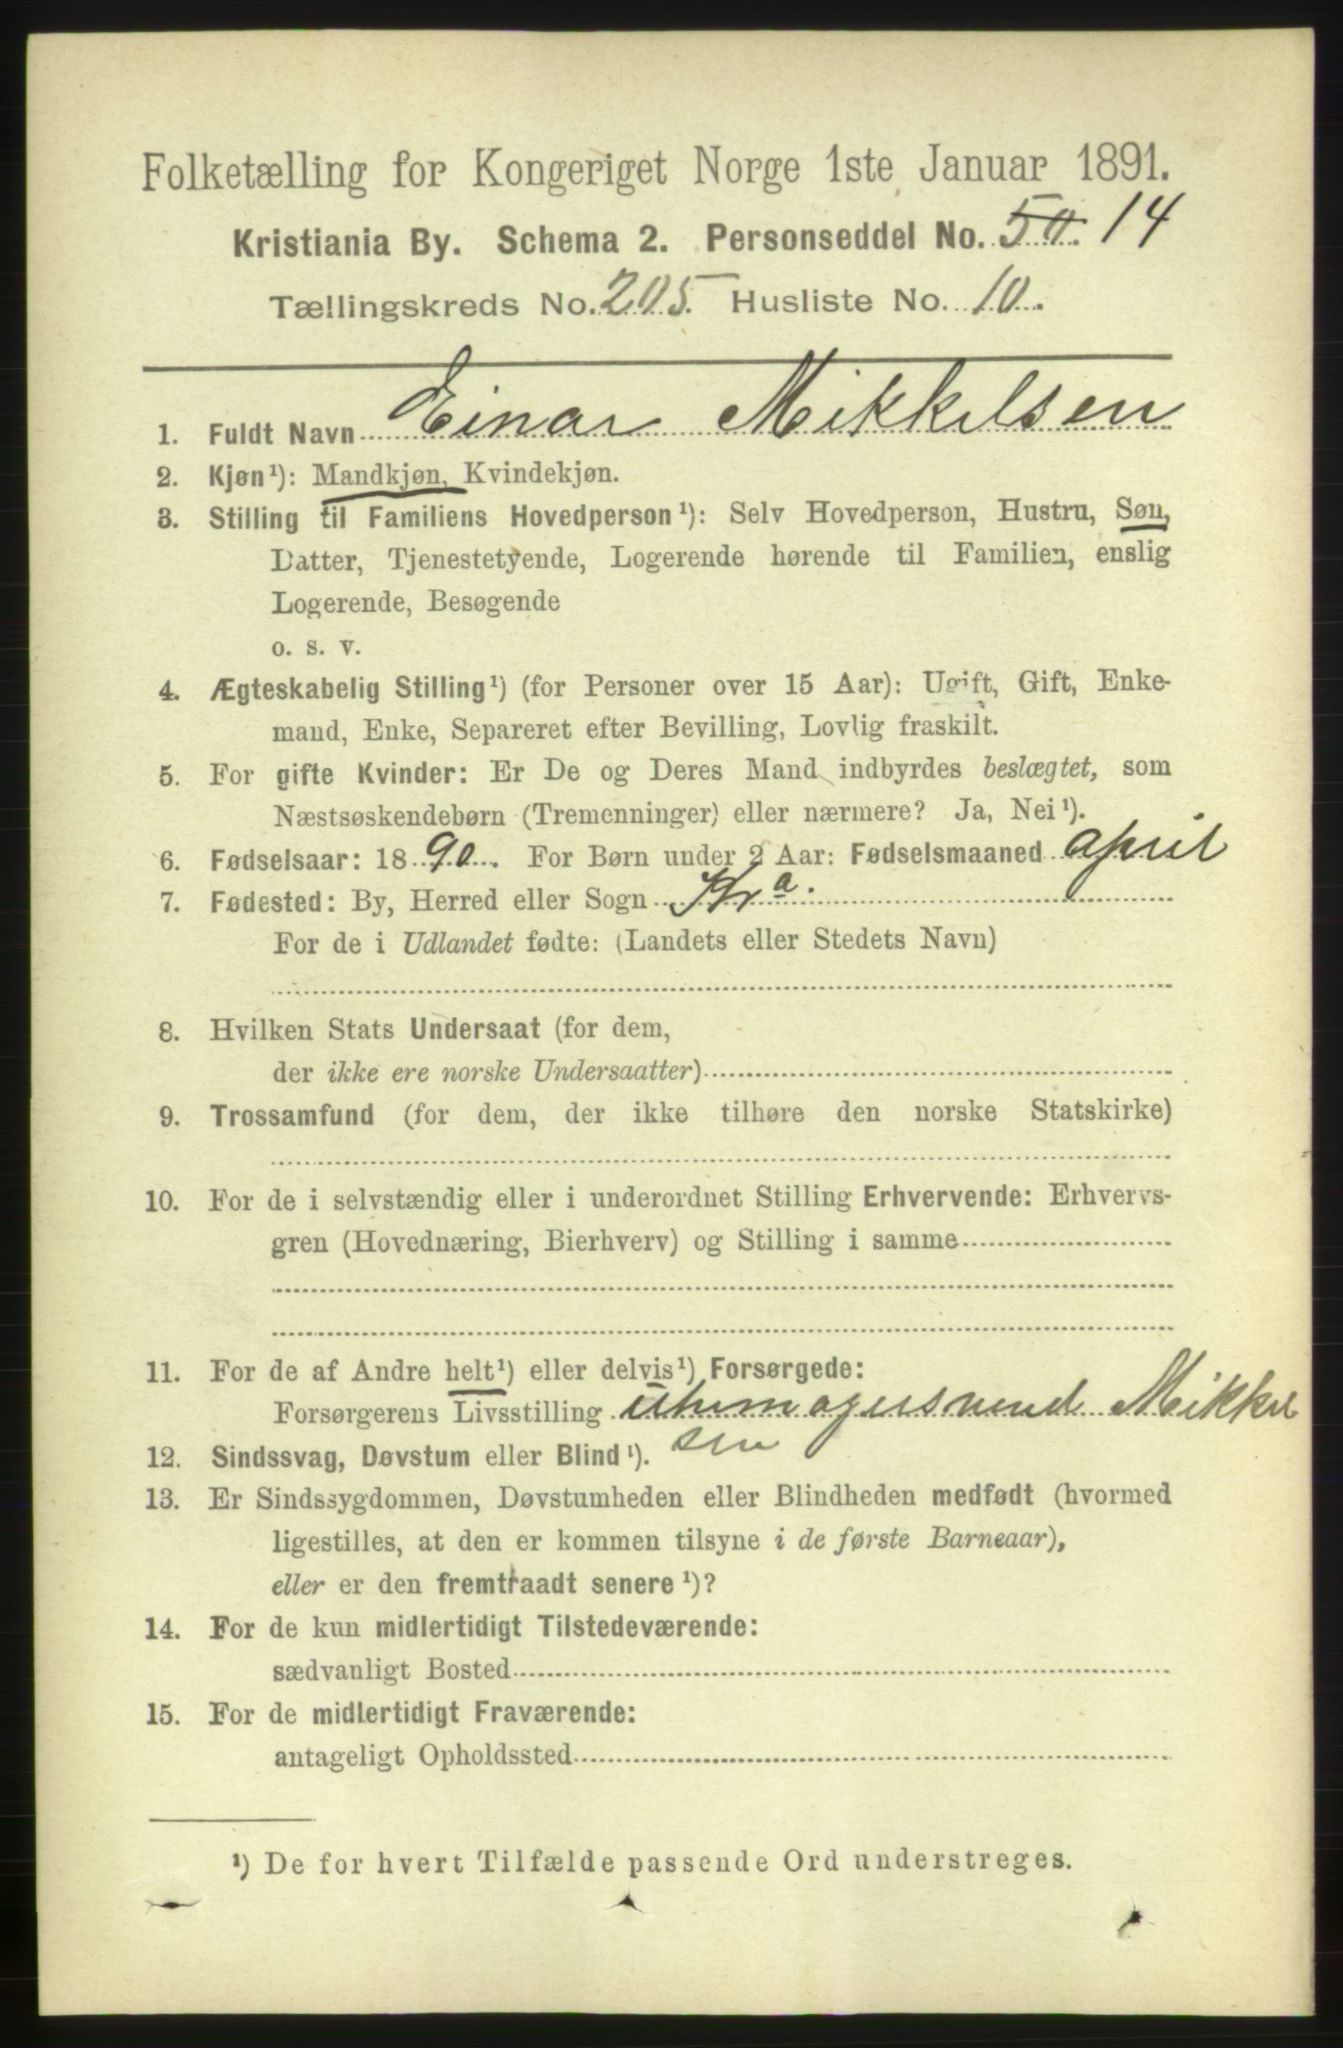 Folketælling for Kongeriget Norge 1ste Januar 1891.
Kristiania By. Schema 2. Personseddel No. 50. 14
Tællingskreds No. 205. Husliste No. 10.
1. Fuldt Navn Einar Mikkelsen
2. Kjøn¹): Mandkjøn, Kvindekjøn.
3. Stilling til Familiens Hovedperson¹): Selv Hovedperson, Hustru, Søn,
Datter, Tjenestetyende, Logerende hørende til Familien, enslig
Logerende, Besøgende
o. s. v.
4. Ægteskabelig Stilling¹) (for Personer over 15 Aar): Ugift, Gift, Enke-
mand, Enke, Separeret efter Bevilling, Lovlig fraskilt.
5. For gifte Kvinder: Er De og Deres Mand indbyrdes beslægtet, som
Næstsøskendebørn (Tremenninger) eller nærmere? Ja, Nei¹).
6. Fødselsaar: 1890. For Børn under 2 Aar: Fødselsmaaned april
7. Fødested: By, Herred eller Sogn Kra.
For de i Udlandet fødte: (Landets eller Stedets Navn)
8. Hvilken Stats Undersaat (for dem,
der ikke ere norske Undersaatter)
9. Trossamfund (for dem, der ikke tilhøre den norske Statskirke)
10. For de i selvstændig eller i underordnet Stilling Erhvervende: Erhvervs-
gren (Hovednæring, Bierhverv) og Stilling i samme
11. For de af Andre helt¹) eller delvis¹) Forsørgede:
Forsørgerens Livsstilling uhrmagersvend Mikkel
sen
12. Sindssvag, Døvstum eller Blind¹).
13. Er Sindssygdommen, Døvstumheden eller Blindheden medfødt (hvormed
ligestilles, at den er kommen tilsyne i de første Barneaar),
eller er den fremtraadt senere¹)?
14. For de kun midlertidigt Tilstedeværende:
sædvanligt Bosted
15. For de midlertidigt Fraværende:
antageligt Opholdssted
¹) De for hvert Tilfælde passende Ord understreges.